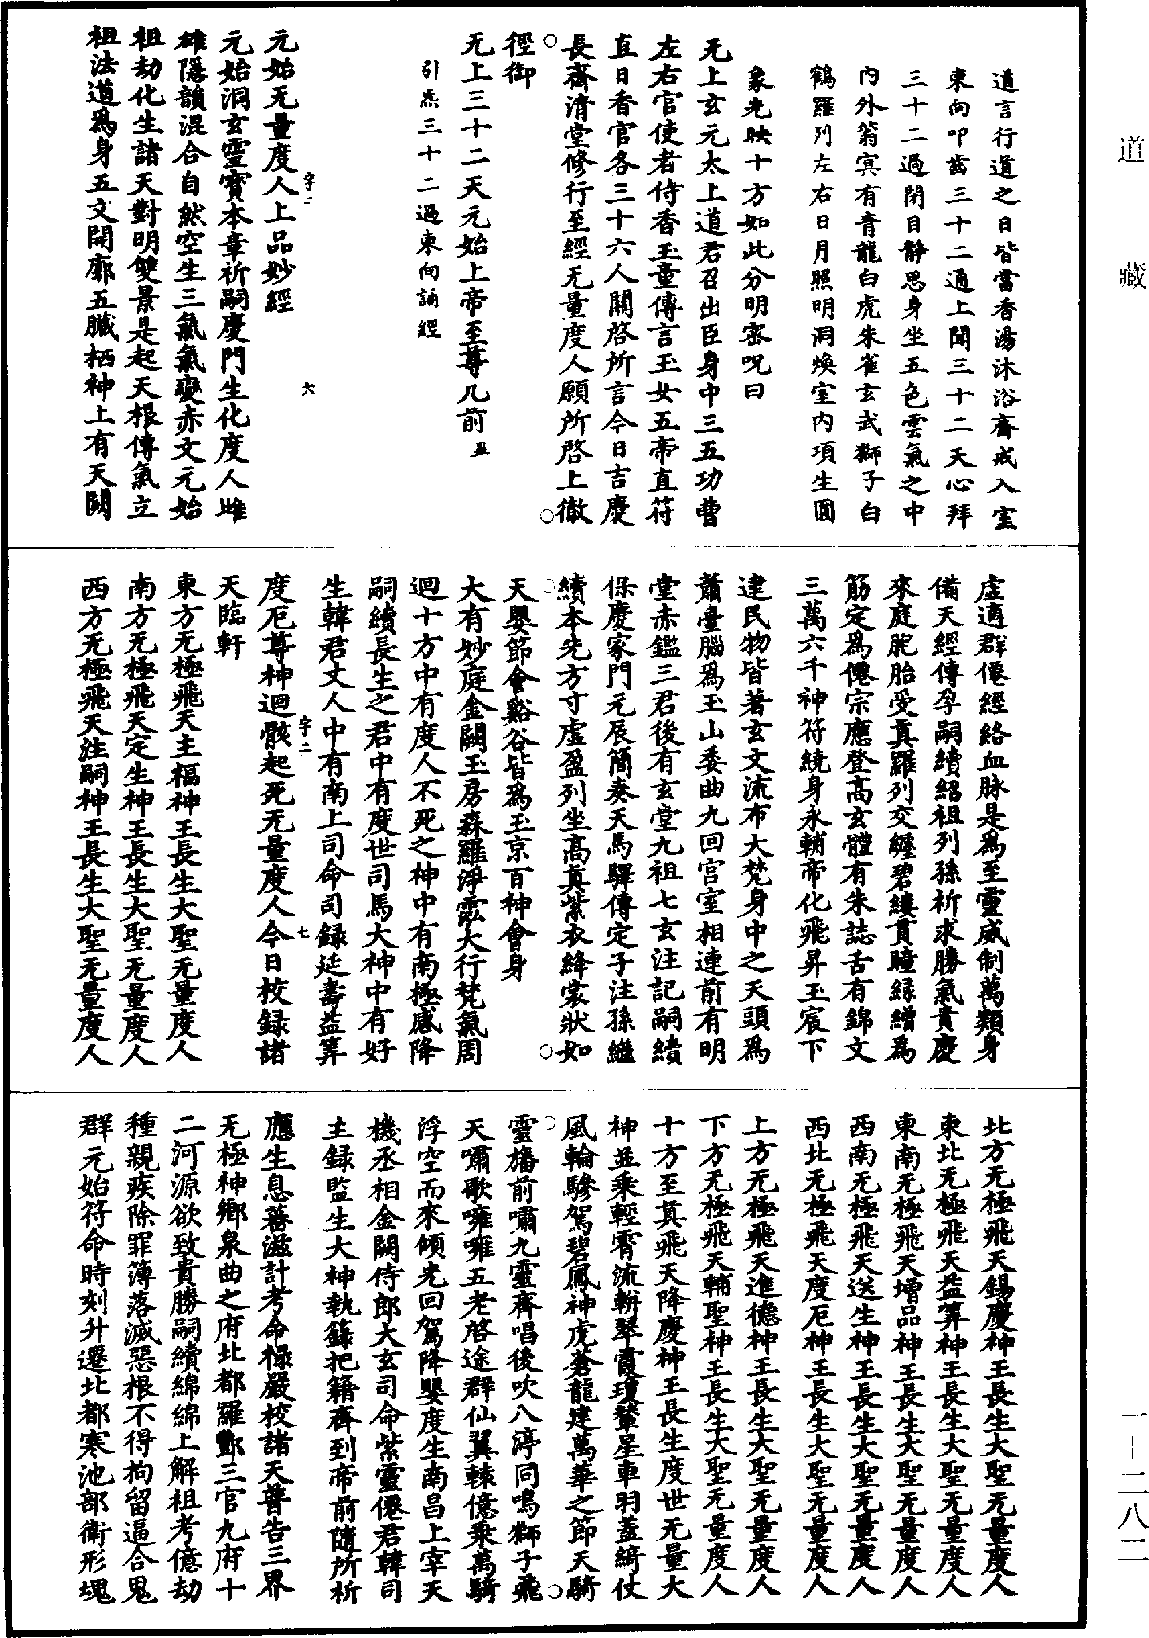 道藏
一—二八二
道言行道之日皆當香湯沐浴齋戒入室
東向叩齒三十二通上聞三十二天心拜
三十二過閉目靜思身坐五色雲氣之中
內外翁冥有青龍白虎朱雀玄武獅子白
鶴羅列左右日月照明洞煥室內項生圓
象光映十方如此分明密呪曰
无上玄元太上道君召出臣身中三五功曹
左右官使者侍香玉童傳言玉女五帝直符
直日香官各三十六人關啓所言今日吉慶
長齋清堂修行至經无量度人願所啓上徹
徑御
无上三十二天元始上帝至尊几前
引炁三十二過東向誦經
元始无量度人上品妙經
字二 六
元始洞玄靈寶本章祈嗣慶門生化度人雌
雄隱韻混合自然空生三氣氣變赤文元始
祖劫化生諸天對明雙景是起天根傳氣立
祖法道爲身五文開廓五臟栖神上有天關
虛通群僊經絡血脉是爲至靈威制萬類身
備天經傳孕嗣續紹祖列孫祈求勝氣貴慶
來庭胞胎受真羅列交纏碧縷貫瞳綠繒爲
筋定爲僊宗應登高玄體有朱誌舌有錦文
三萬六千神符繞身永輔帝化飛昇玉宸下
建民物皆著玄文流布大梵身中之天頭爲
蕭臺腦爲玉山委曲九回宫室相連前有明
堂赤鑑三君後有玄堂九祖七玄注記嗣續
保慶家門元辰簡奏天馬驛傳定子注孫繼
續本先方寸虛盈列坐高真紫衣絳裳狀如
天嬰節會谿谷皆爲玉京百神會身
大有妙庭金闕玉房森羅淨泓大行梵氣周
迴十方中有度人不死之神中有南極感降
嗣續長生之君中有度世司馬大神中有好
生韓君丈人中有南上司命司録延壽益筭
度厄尊神迴骸起死无量度人今日校録諸
天臨軒
字二 七
東方无極飛天主福神王長生大聖无量度人
南方无極飛天定生神王長生大聖无量度人
西方无極飛天注嗣神王長生大聖无量度人
北方无極飛天錫慶神王長生大聖无量度人
東北无極飛天益筭神王長生大聖无量度人
東南无極飛天增品神王長生大聖无量度人
西南无極飛天送生神王長生大聖无量度人
西北无極飛天度厄神王長生大聖无量度人
上方无極飛天進德神王長生大聖无量度人
下方无極飛天輔聖神王長生大聖无量度人
十方至真飛天降慶神王長生度世无量大
神並乘輕霄流輧翠霞瓊輦星車羽蓋綺仗
風輪驂駕碧鳳神虎蒼龍建萬華之節天騎
靈旛前嘯九靈齊唱後吹八渟同鳴獅子飛
天嘯歌嗈嗈五老啓途群仙翼轅億乘萬騎
浮空而來傾光回駕降嬰度生南昌上宰天
機丞相金闕侍郎大玄司命紫靈僊君韓司
主録監生大神執籙把籍齊到帝前隨所祈
應生息蕃滋計考命祿嚴校諸天普告三界
无極神鄉泉曲之府北都羅酆三官九府十
二河源欲致貴勝嗣續綿綿上解祖考億劫
種親疾除罪簿落滅惡根不得拘留逼合鬼
群元始符命時刻升遷北都寒池部衛形魂